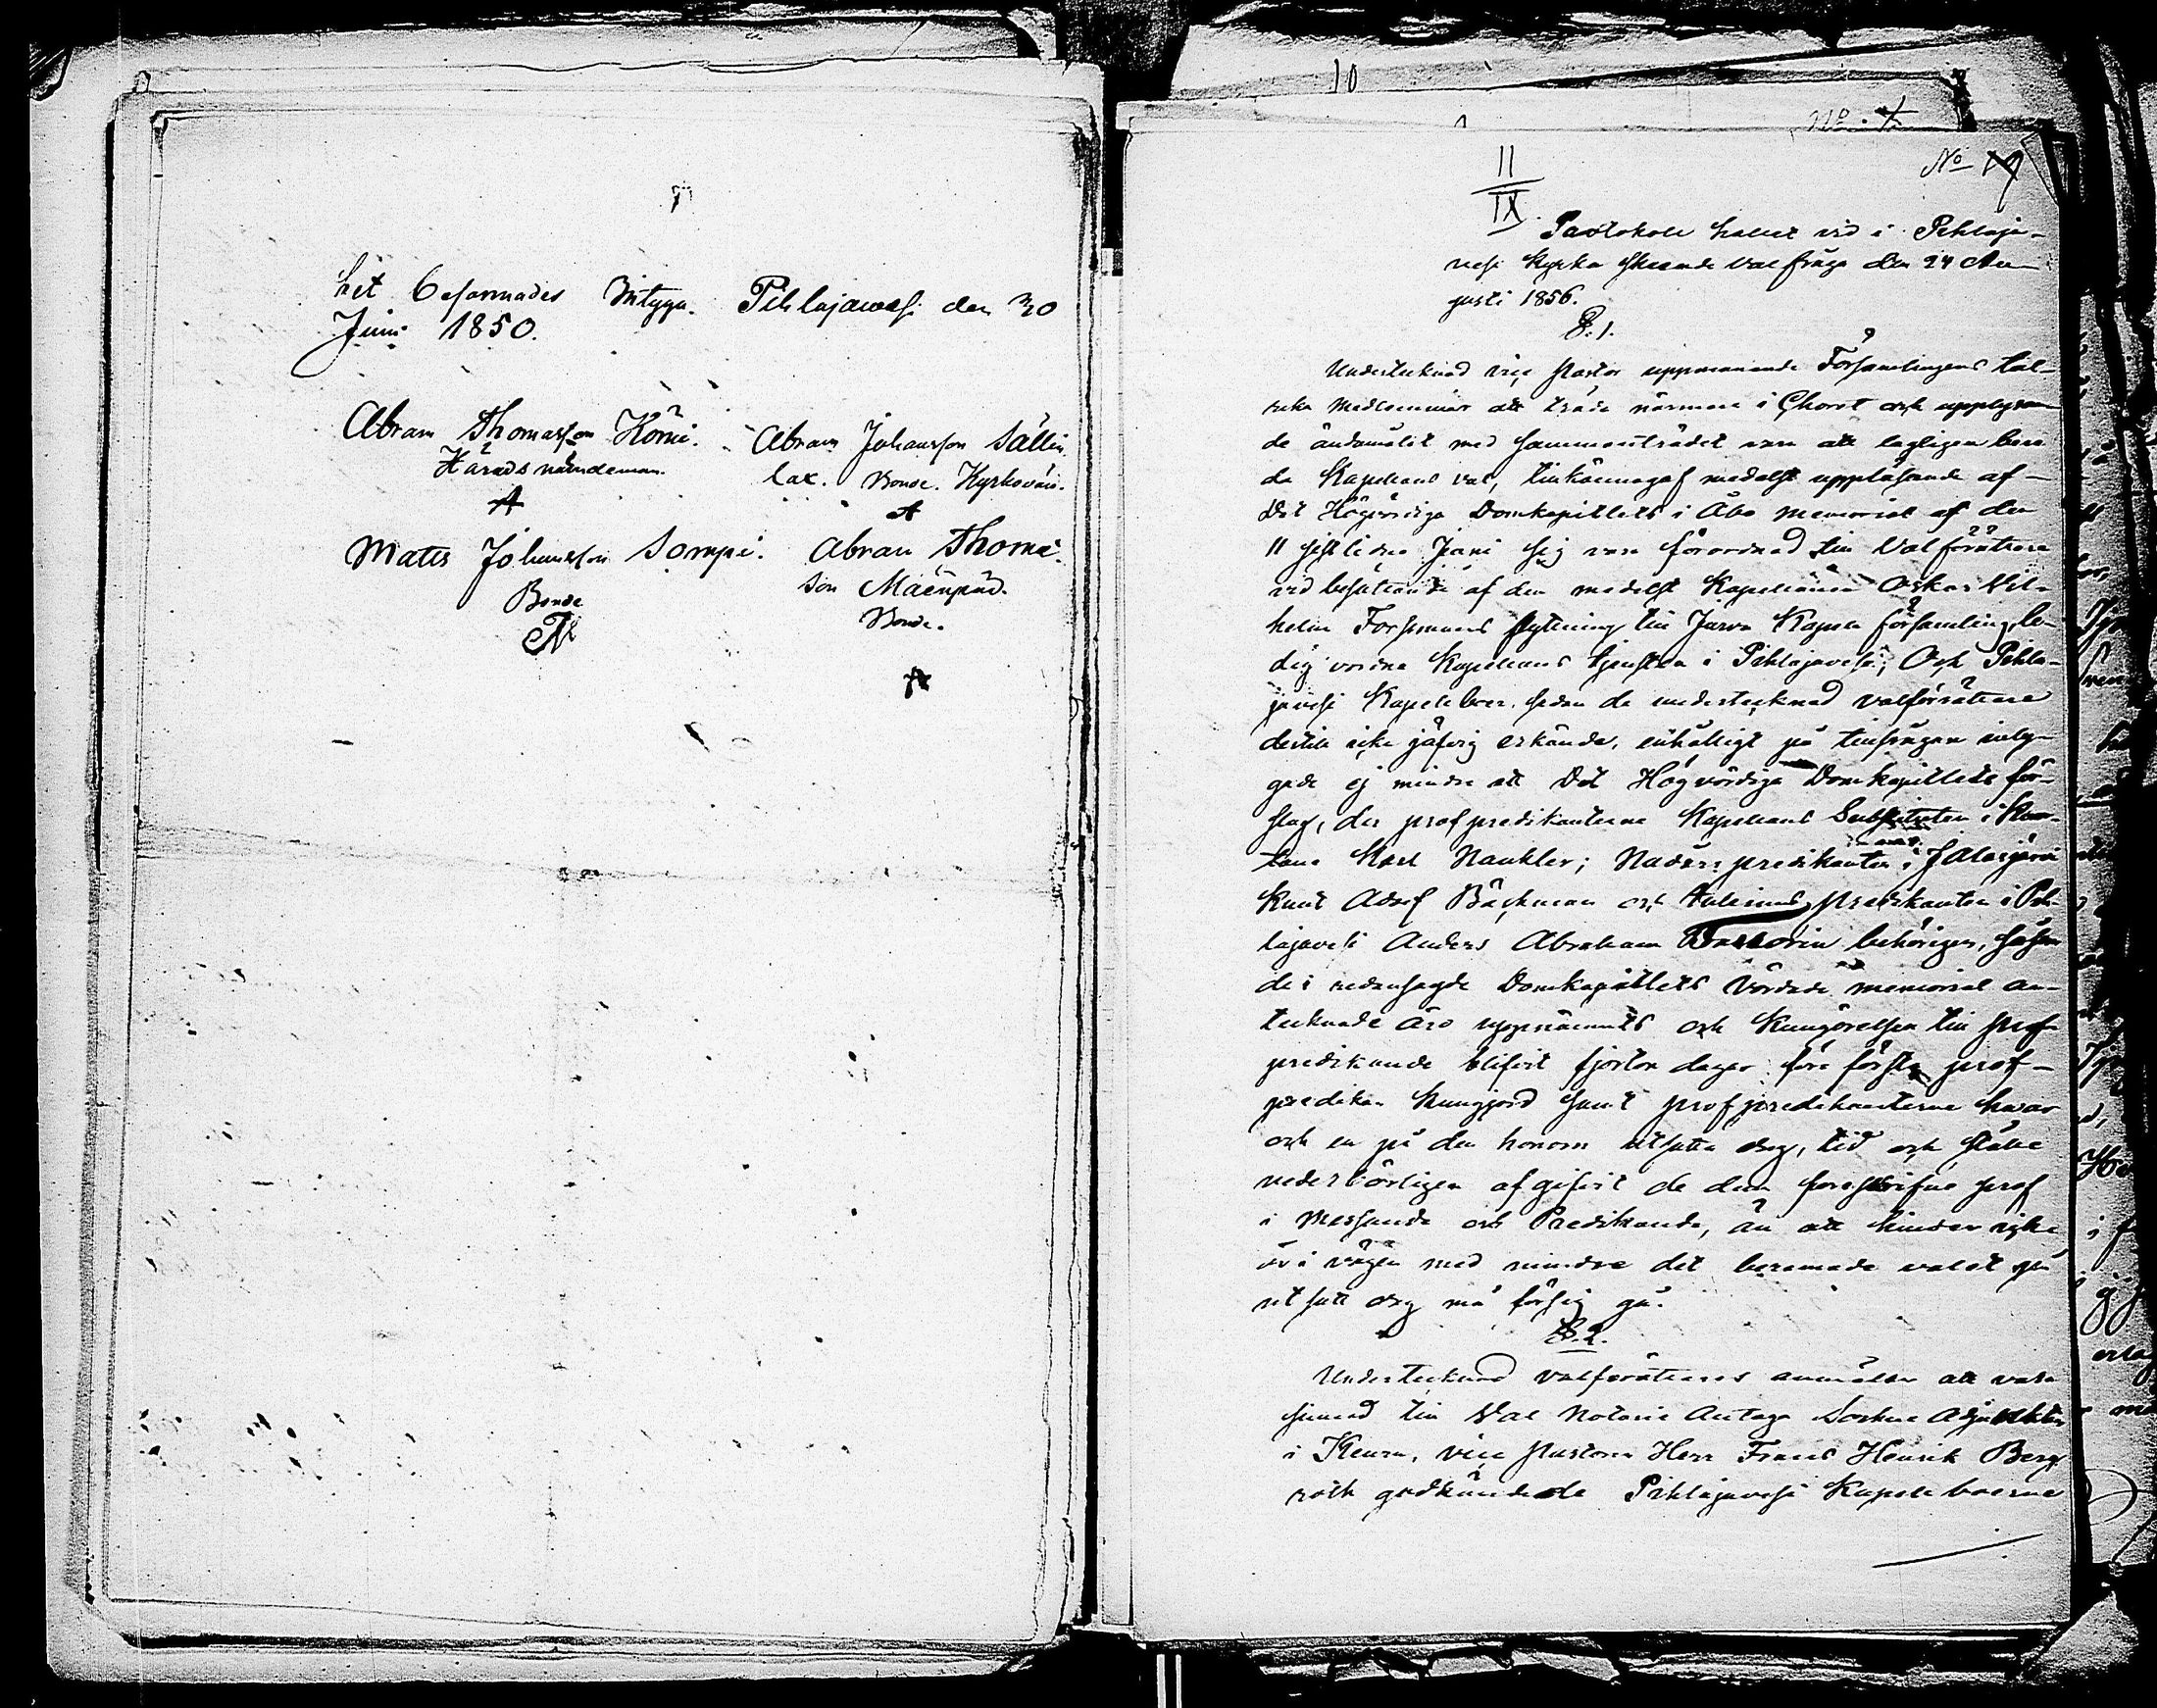 het besannades Intyga. Pihlajawesi den 30
Juni 1850.
Abram Thomasson Körni.
Härads nämndeman.
Abram Johansson Sällin
lax. Bonde. Kyrkovär.
Matts Johansson Sompi.
Bonde
Abram Thoma
son Mäenpää.
Bonde.
10
No
No
11
IX
Protokoll hallet vid i Pihlaja-
vesi Kyrka skeende valfråga den 24 Au-
gusti 1856.
§. 1.
Undertecknad vice Pastor uppmanande Församlingens tal-
rika Medlemmar att träda närmare i Choret och upplysan-
de ändamålet med sammanträdet vara att lagligen bere
da Kapellans val, tillkännagaf medelst uppläsande af
Det Högvördiga Domkapitlets i Åbo memorial af den
11 sistlidne Juni sig vara förordnad till Valförrättare
vid besättande af den medelst Kapellanen Oskar Vil-
helm Forsmans flyttning till Jurva Kapell församling le-
dig vordna Kapellans tjensten i Pihlajavesi; Och Pihla-
javesi Kapellboer, sedan de undertecknad valförrättare
dertill icke jäfvig erkände, enhälligt på tillfrågan intyg-
gade ej mindre att Det Högvördiga Domkapitlets för-
slag, der profpredikanterne Kapellans Substituten i
Karl Nankler; Nådårs predikanten i Jalasjärvi
Knut Adolf Bäckman och predikanten i Pih-
lajavesi Anders Abraham behörigen, såsom
de i nedansagde Domkapitlets Vördade memorial an-
tecknade äro uppnämnts och Kungörelsen till prof-
predikande blifvit fjorton dagar före första prof-
predikan kungjord samt profpredikanterne hvar
och en på den honom utsatta dag, tid och ställe
vederbörligen afgifvit de dem föreskrifne prof
i Messande och Predikande, än att hinder icke
är i vägen med mindre det beramade valet på
utsatt dag må försig gå.
§. 2.
Undertecknad valförrättares anmälan att vara
sinnad till Val Notarie Antaga Sockne Adjunkten
i Keuru, vice Pastorn Herr Frans Henrik Berg
roth godkände de Pihlajavesi Kapellboerne